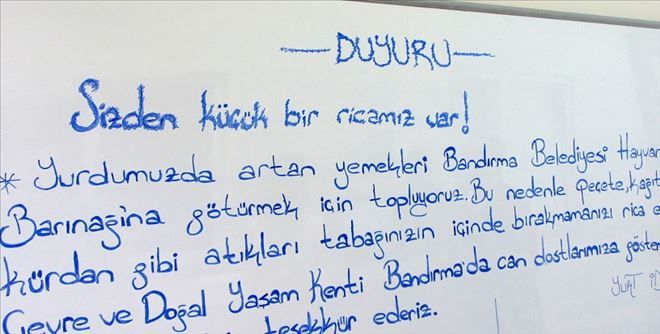 — DUYURU —
Sizden küçük bir ricamız var!
* Yurdumuzda artan yemekleri Bandırma Belediyesi Hayvan
Barınağına götürmek için topluyoruz. Bu nedenle peçete, kağıt
kürdan gibi atıkları tabağınızın içinde bırakmamanızı rica e
Çevre ve Doğal Yaşam Kenti Bandırma'da can dostlarımıza göster
teşekkür ederiz.
YURT